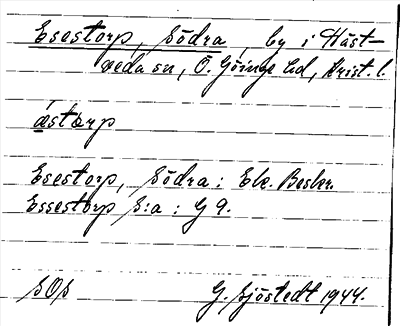 Esestorp, Södra, by i Häst-
veda sn, Ö. Göinge hd, Krist. l.
æ̀stərp
Esestorp, Södra: Ek. Beskr.
Essestorp S:a: G 9.
SOS
G. Sjöstedt 1944.